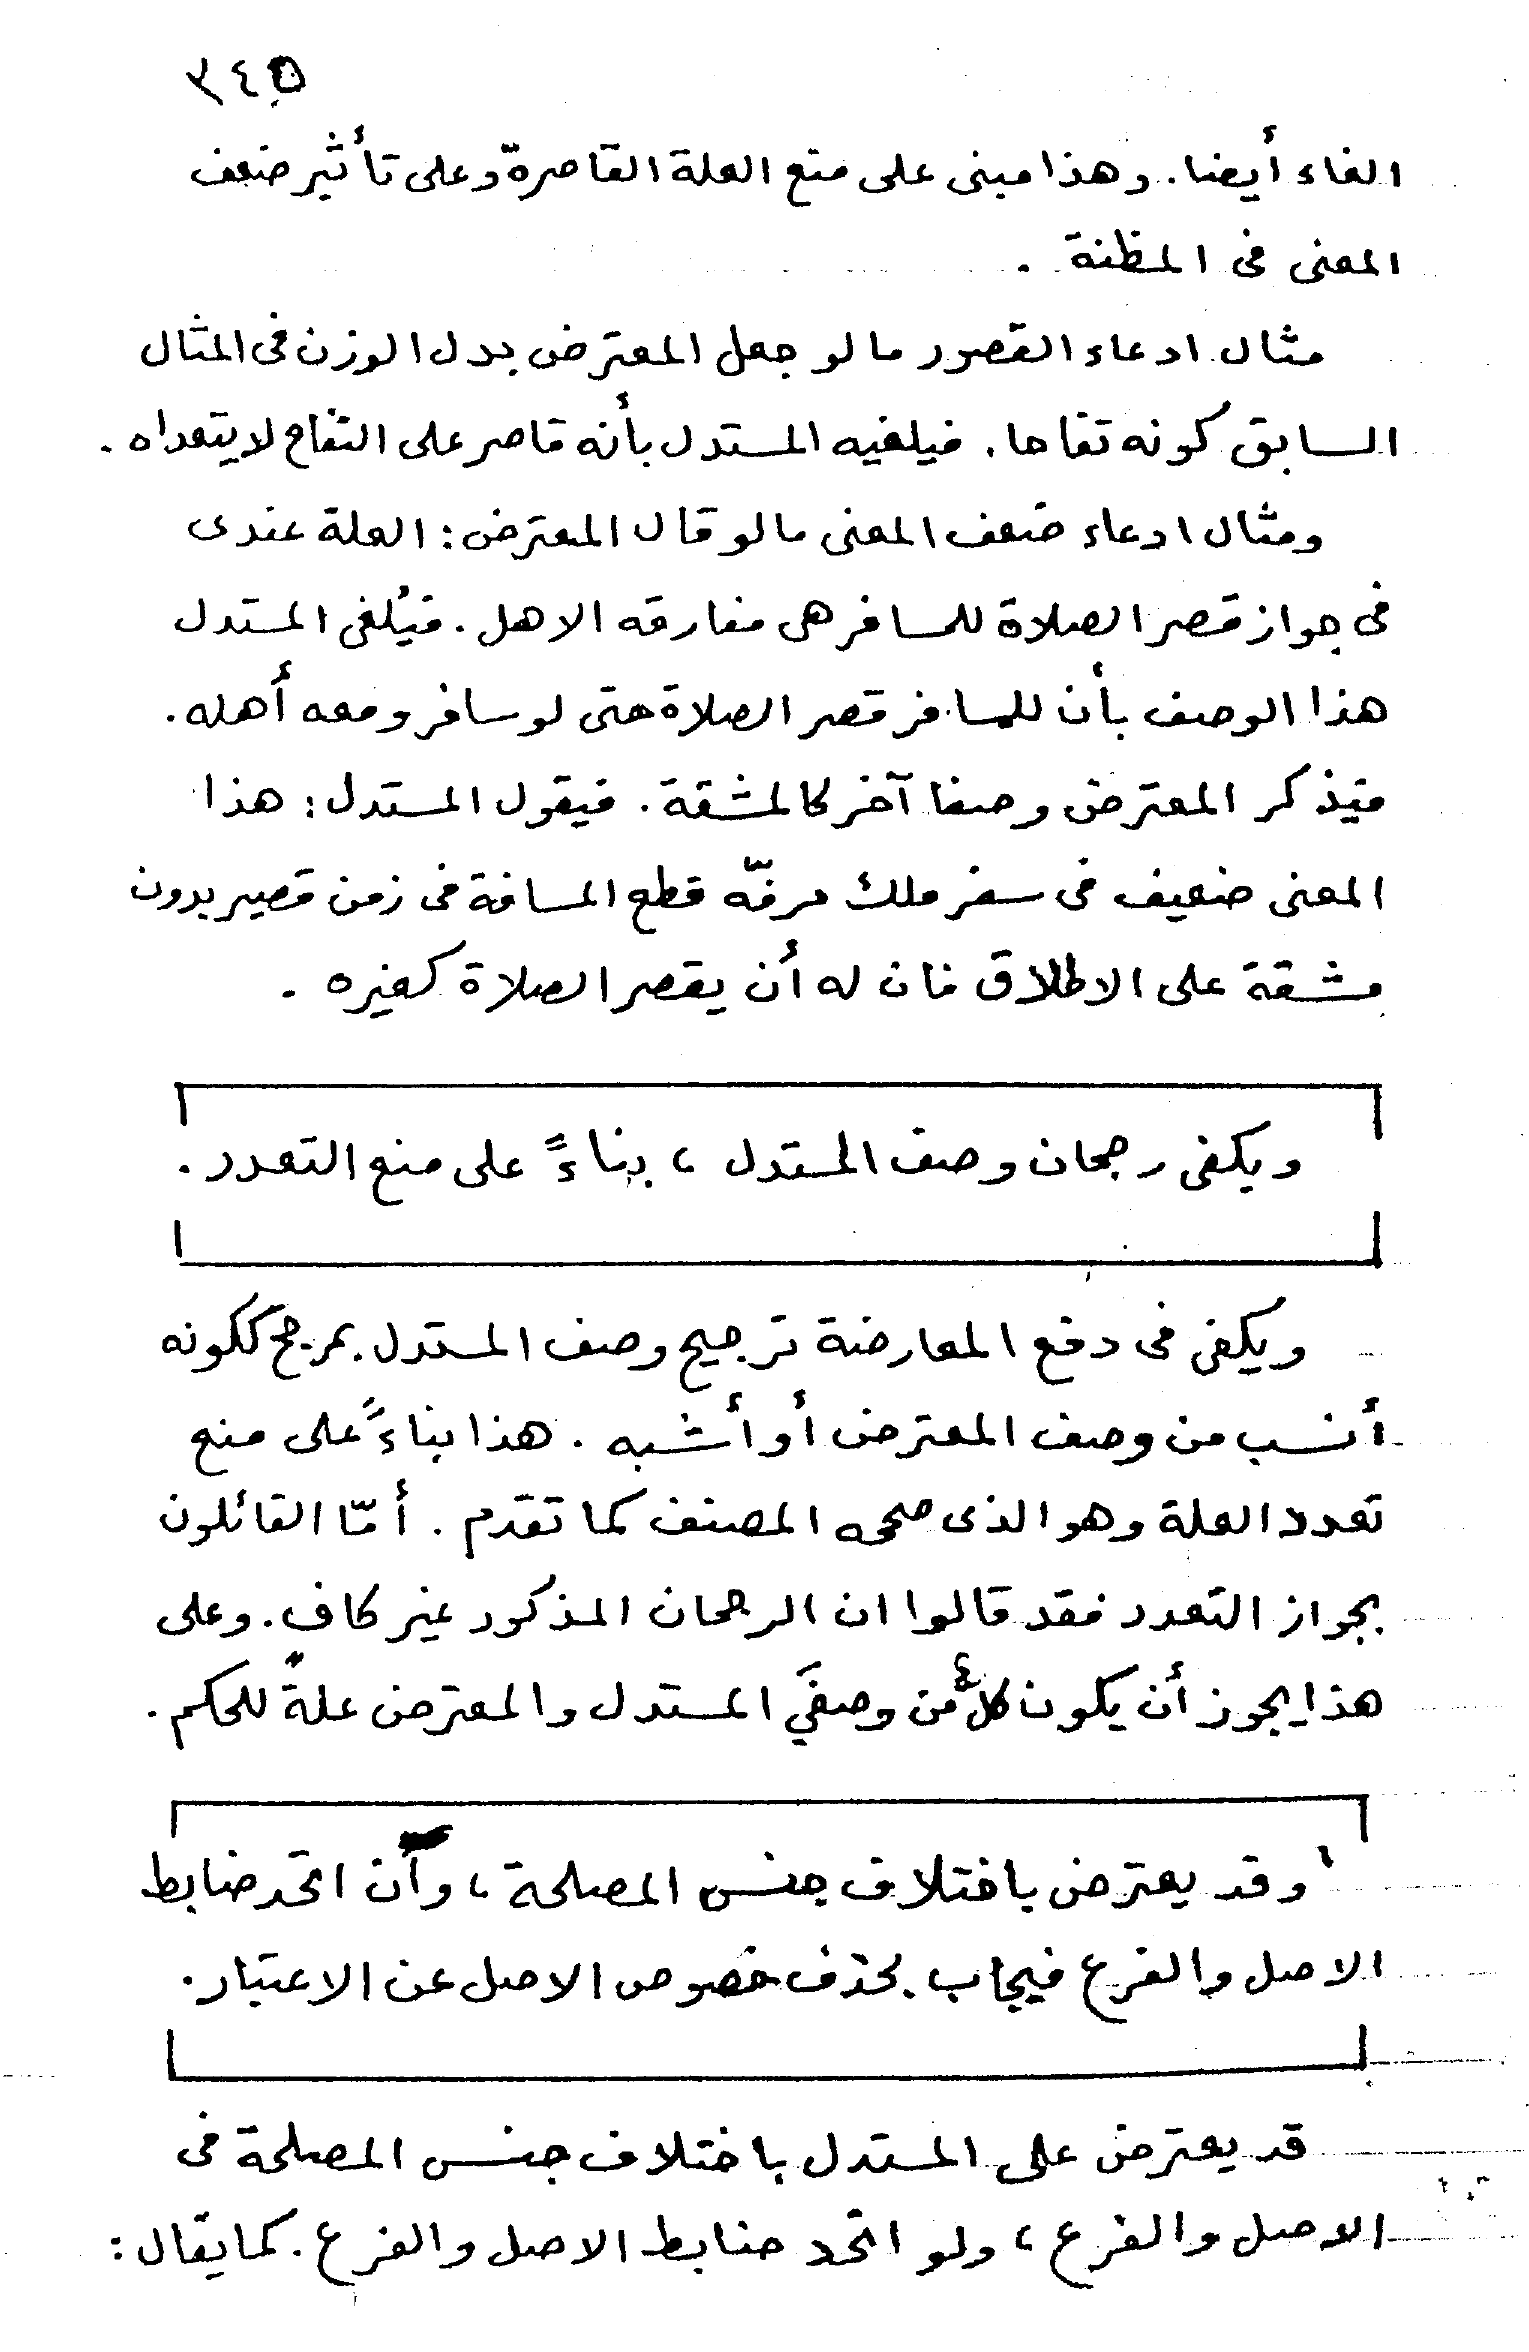 ٣٤٥
الغاء أيضا. وهذا مبنى على منع العلة القاصرة وعلى تأثير ضعف
المعنى فى المظنة .
مثال ادعاء القصور مالو جعل المعترض بدل الوزن فى المثال
السابق كونه تفاحا. فيلغيه المستدل بأنه قاصر على التفاح لا يتعداه .
ومثال ادعاء ضعف المعنى مالو قال المعترض : العلة عندى
فى جواز قصر الصلاة للمسافر هى مفارقه الاهل . فيُلغى المستدل
هذا الوصف بأن للمسافر قصر الصلاة حتى لو سافر ومعه أهله .
فيذكر المعترض وصفا آخر كالمشقة . فيقول المستدل : هذا
المعنى ضعيف فى سفر ملك مرفّه قطع المسافة فى زمن قصير بدون
مشقة على الاطلاق فان له أن يقصر الصلاة كغيره .
ويكفى رجحان وصف المستدل ، بناءً على منع التعدد .
ويكفى فى دفع المعارضة ترجيح وصف المستدل بمرجح ككونه
أنسب من وصف المعترض أو أشبه . هذا بناءً على منع
تعدد العلة وهو الذى صححه المصنف كما تقدم . أمّا القائلون
بجواز التعدد فقد قالوا ان الرجحان المذكور غير كاف . وعلى
هذا يجوز أن يكون كلٌ من وصفَي المستدل والمعترض علةً للحكم .
وقد يعترض باختلاف جنس المصلحة ، وان اتحد ضابط
الاصل والفرع فيجاب بحذف خصوص الاصل عن الاعتبار .
قد يعترض على المستدل باختلاف جنس المصلحة فى
الاصل والفرع ، ولو اتحد ضابط الاصل والفرع . كما يقال :